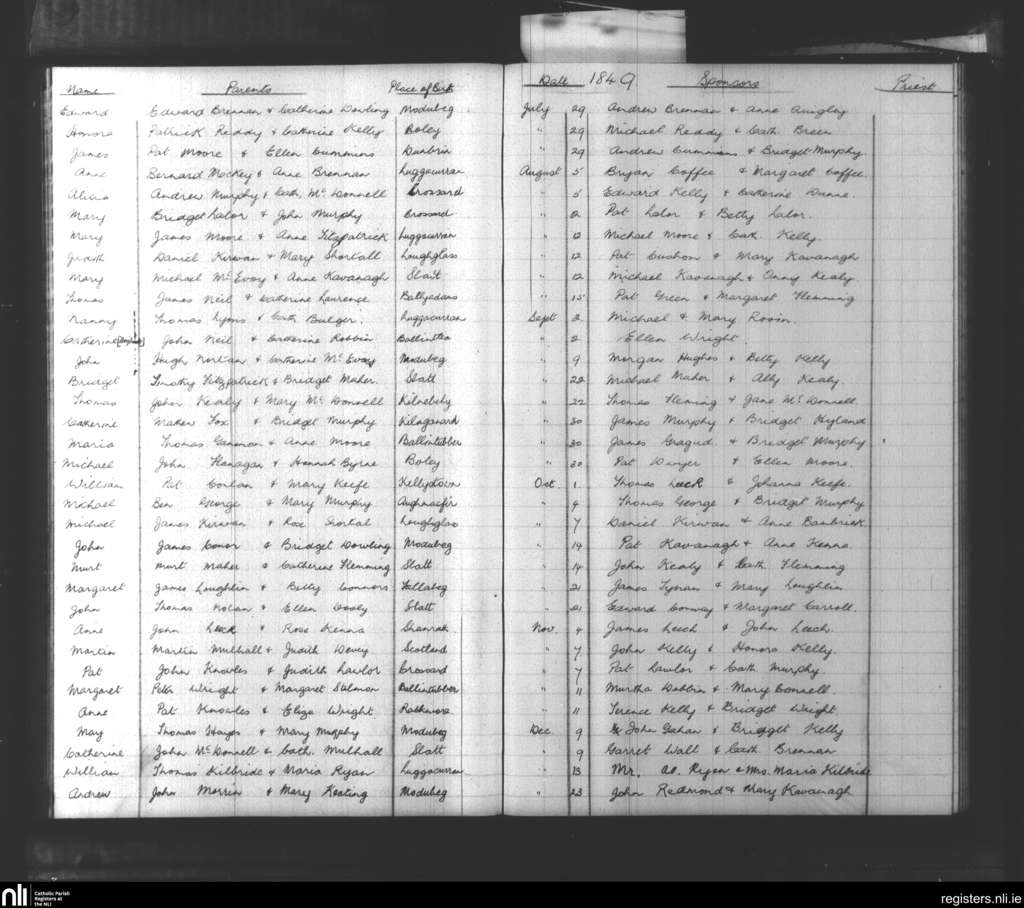 Name Parents Place of Birth Date 1849 Sponsors Priest
Edward Edward Brennan & Catherine Dowling Modubeg July 29 Andrew Brennan & Anne Quigley
Honora Patrick Reddy & Catherine Kelly Boley " 29 Michael Reddy & Cath Breen
James Pat Moore & Ellen Cummins Dunbrin " 29 Andrew Cummins & Bridget Murphy.
Anne Bernard Mackey & Anne Brennan Luggacurran August 5 Bryan Coffee & Margaret Coffee.
Alicia Andrew Murphy & Cath. Mc Donnell Crossard " 5 Edward Kelly & Catherine Dunne.
Mary Bridget Lalor & John Murphy Crossard " 2 Pat Lalor & Betty Lalor.
Mary James Moore & Anne Fitzpatrick Luggacurran " 12 Michael Moore & Cath. Kelly.
Judith Daniel Kirwan & Mary Shortall Loughglass " 12 Pat Cushon & Mary Kavanagh
Mary Michael Mc Evoy & Anne Kavanagh Slatt " 12 Michael Kavanagh & Onny Kealy.
Thomas James Neil & Catherine Lawrence Ballyadans " 15 Pat Green & Margaret Flemming
Nanny Thomas Lyons & Cath Bulger. Luggacurran Sept 2 Michael & Mary
Catherine John Neil & Catherine Robbin Ballintlea " 2 Ellen Wright.
John Hugh & Catherine Mc Evoy Modubeg " 9 Morgan Hughes & Betty Kelly
Bridget Timothy Fitzpatrick & Bridget Maher. Slatt " 22 Michael Maher & Ally Kealy.
Thomas John Kealy & Mary Mc Donnell " 22 Thomas Fleming & Jane Mc Donnell.
Catherine Fox & Bridget Murphy Kilaganard " 30 James Murphy & Bridget Hyland
Maria Thomas Gannon & Anne Moore Ballintubber " 30 James & Bridget Murphy
Michael John Flanagan & Hannah Byrne Boley " 30 Pat Dwyer & Ellen Moore.
William Pat Conlan & Mary Keefe Kellystown Oct. 1 Thomas Leeck & Johanna Keefe.
Michael Ben George & Mary Murphy " 4 Thomas George & Bridget Murphy
Michael James Kirwan & Rose Shortal Loughglass " 7 Daniel Kirwan & Anne Banbrick
John James Conor & Bridget Dowling Modubeg " 14 Pat Kavanagh & Anne Kenna
Murt Murt Maher & Catherine Flemming Slatt " 14 John Kealy & Cath Flemming
Margaret James Loughlin & Betty Connors " 21 James Tynan & Mary Loughlin
John Thomas Nolan & Ellen Dooly Slatt " 21 Edward Conway & Margaret Carroll.
Anne John Leeck & Rose Kenna Shanrah. Nov. 4 James Leech & John Leech.
Martin Martin Mulhall & Judith Devey Scotland " 7 John Kelly & Honora Kelly.
Pat John Knowles & Judith Lawlor Crossard " 7 Pat Lawlor & Cath Murphy.
Margaret Peter Wright & Margaret Salmon Ballintubber " 11 Murtha Dobbin & Mary Connell.
Anne Pat Knowles & Eliza Wright Rathmore. " 11 Terence Kelly & Bridget Wright.
May Thomas Hayes & Mary Murphy Modubeg Dec. 9 John Gahan & Bridget Kelly
Catherine John Mc Donnell & Cath. Mulhall Slatt " 9 Garret Wall & Cath Brennan
William Thomas Kilbride & Maria Ryan Luggacurran " 13 Mr. Ryan & Mrs. Maria Kilbride
Andrew John Morrin & Mary Keating Modubeg " 23 John Redmond & Mary Kavanagh
nli Catholic Parish Registers at the NLI registers.nli.ie